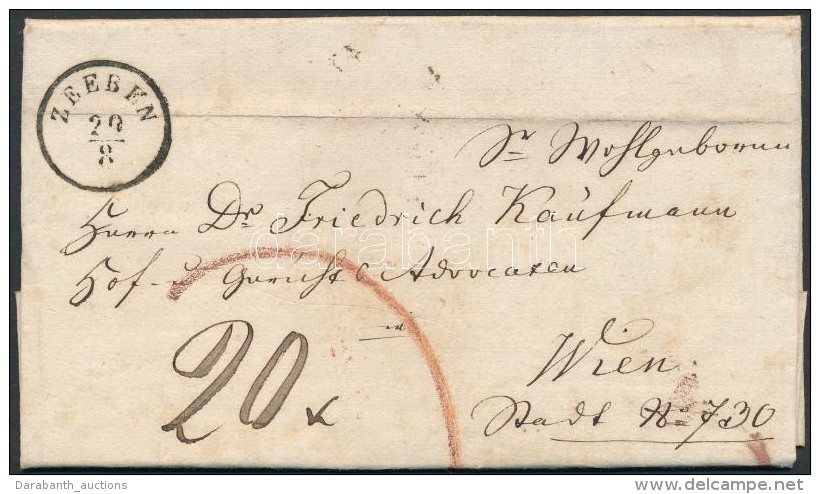 ZEEBEN
20
8
Sr Wohlgeboren
Herrn Dr Friedrich Kaufmann
Hof- u Gerichts Advocaten
in
20 x
Wien
Stadt No 730
darabanth
Darabanth_auctions
www.delcampe.net